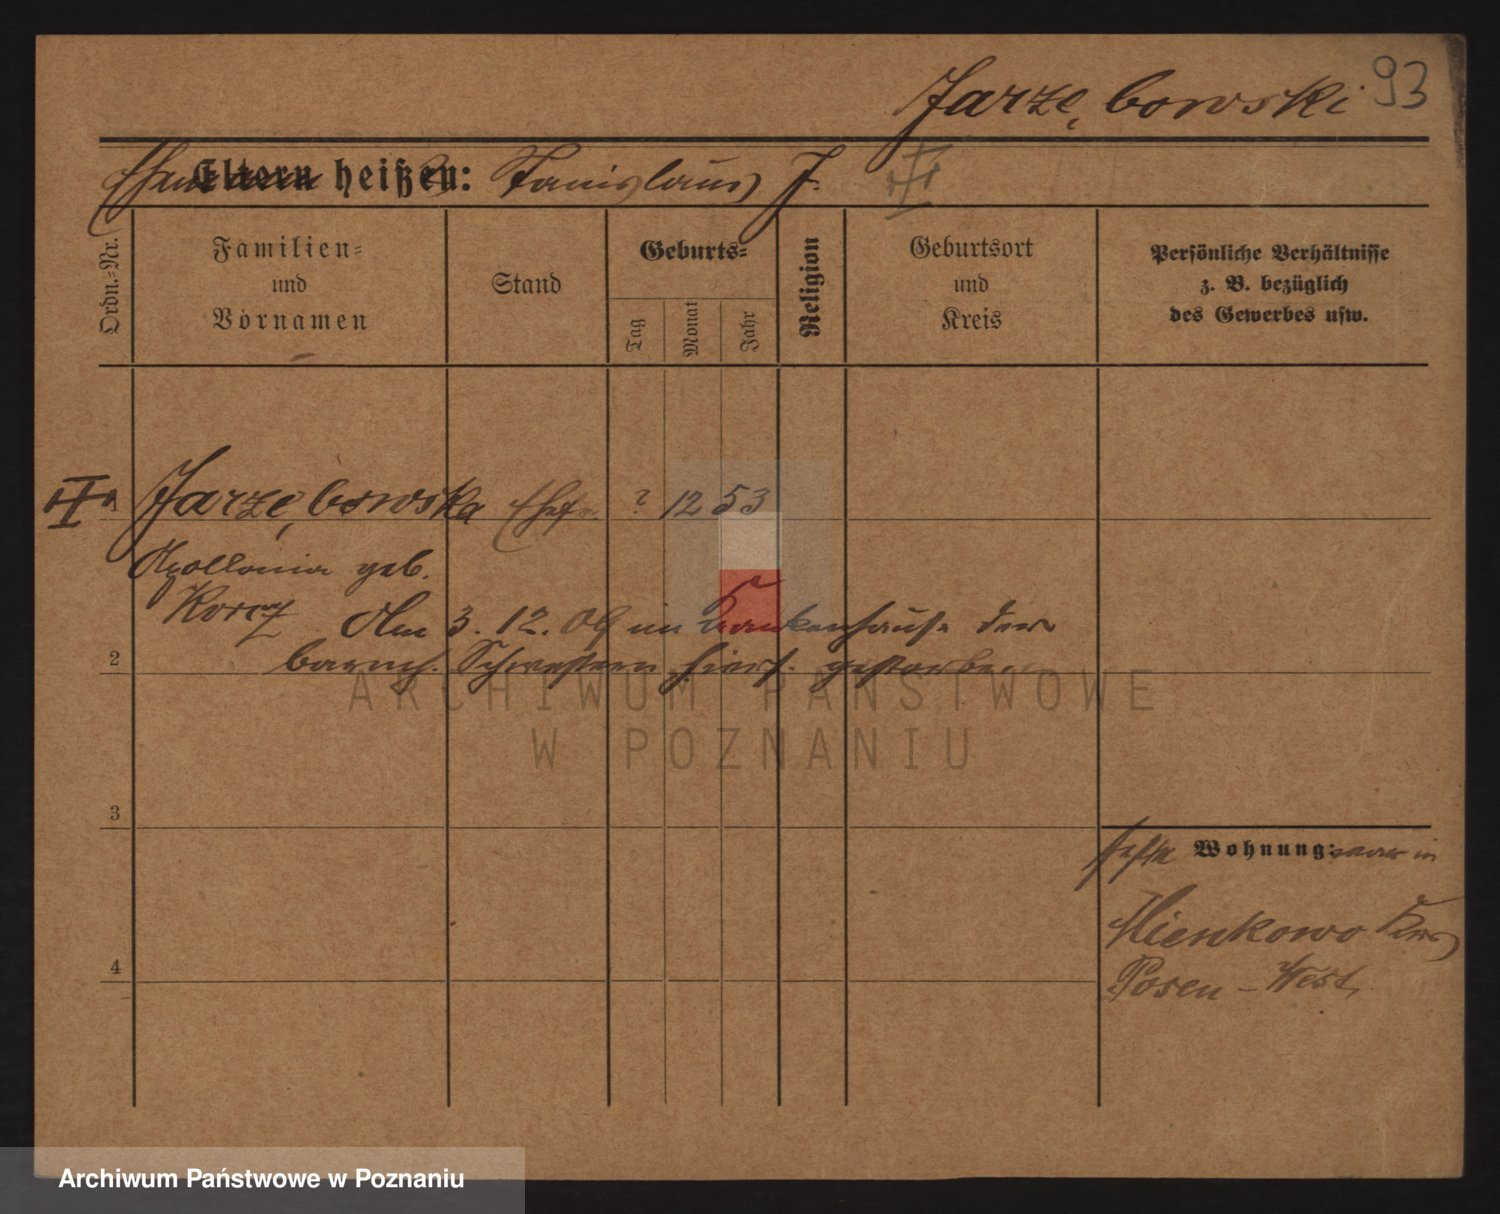 Jarzębowski 93
Eltern heißen: Stanislaus J.
Ordn.-Nr.
Familien-
und
Vornamen
Stand
Geburts-
Tag
Monat
Jahr
Religion
Geburtsort
und
Kreis
Persönliche Verhältnisse
z. B. bezüglich
des Gewerbes usw.
1 Jarzębowska Ehefr. ? 12 53
Apollonia geb.
Korcz Am 3. 12. 09 im Krankenhause der
2 barmh. Schwestern hiers. gestorben
ARCHIWUM PAŃSTWOWE
W POZNANIU
3
Wohnung: war in
Kreis
Posen-West.
4
Archiwum Państwowe w Poznaniu